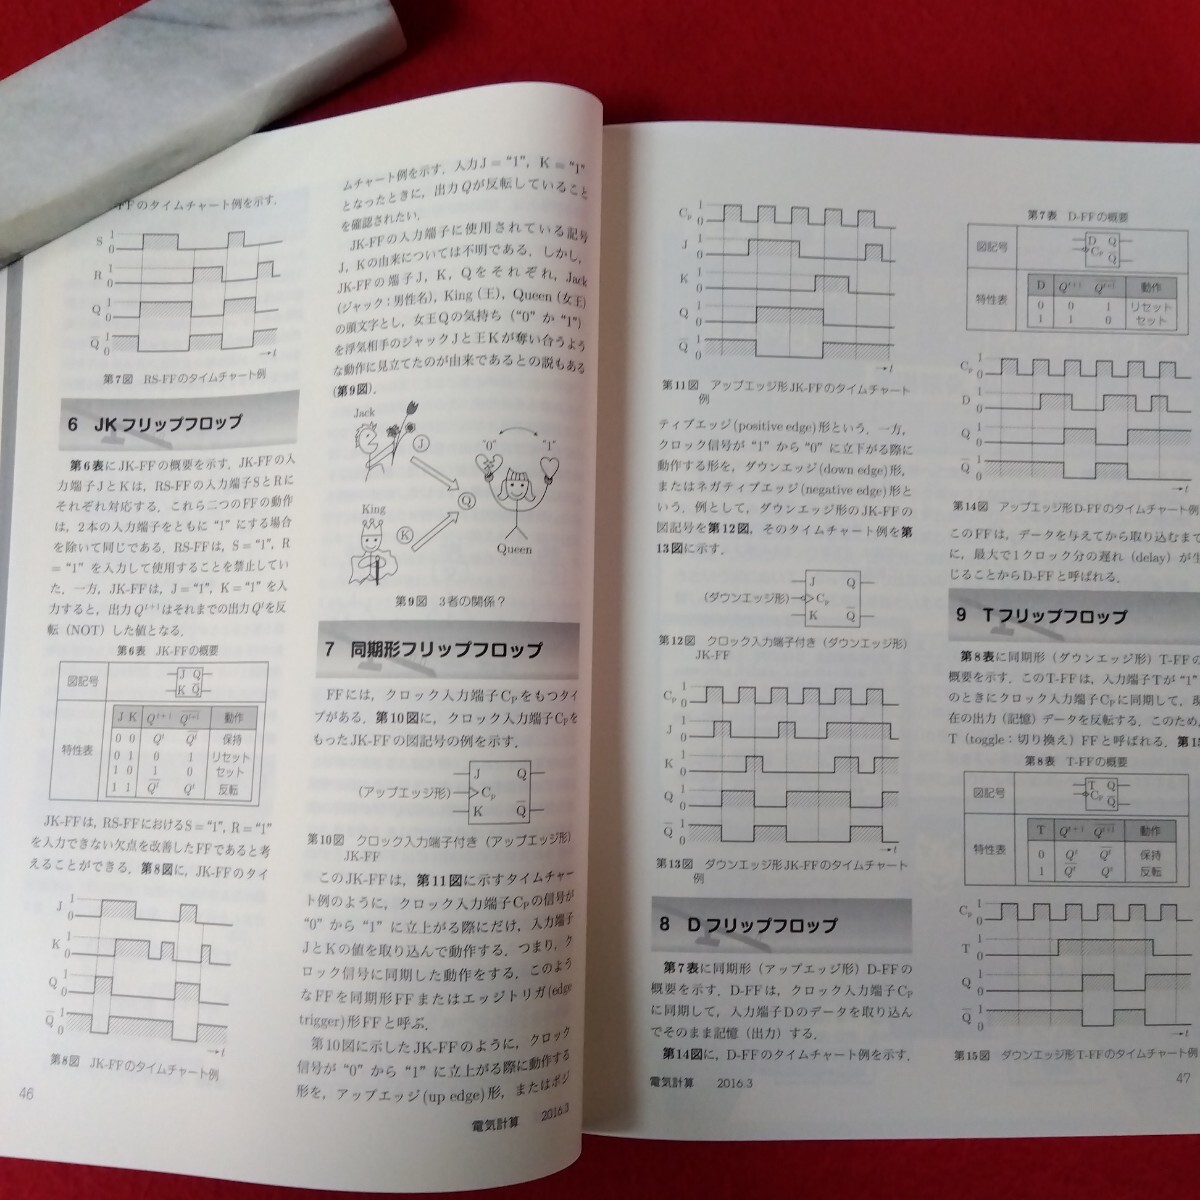 FFのタイムチャート例を示す.
S 1 0
R 1 0
Q 1 0
Q̅ 1 0
→t
第7図 RS-FFのタイムチャート例
6 JKフリップフロップ
第6表にJK-FFの概要を示す. JK-FFの入
力端子JとKは, RS-FFの入力端子SとRに
それぞれ対応する. これら二つのFFの動作
は, 2本の入力端子をともに “1” にする場合
を除いて同じである. RS-FFは, S = “1”, R
= “1” を入力して使用することを禁止してい
た. 一方, JK-FFは, J = “1”, K = “1” を入
力すると, 出力Qᵗ⁺¹はそれまでの出力Qᵗを反
転 (NOT) した値となる.
第6表 JK-FFの概要
図記号
J Q
K Q̅
特性表
J K Qᵗ⁺¹ Q̅ᵗ⁺¹ 動作
0 0 Qᵗ Q̅ᵗ 保持
0 1 0 1 リセット
1 0 1 0 セット
1 1 Q̅ᵗ Qᵗ 反転
JK-FFは, RS-FFにおけるS = “1”, R = “1”
を入力できない欠点を改善したFFであると考
えることができる. 第8図に, JK-FFのタイ
J 1 0
K 1 0
Q 1 0
Q̅ 1 0
→t
第8図 JK-FFのタイムチャート例
46
ムチャート例を示す. 入力J = “1”, K = “1”
となったときに, 出力Qが反転していること
を確認されたい.
JK-FFの入力端子に使用されている記号
J, Kの由来については不明である. しかし,
JK-FFの端子J, K, Qをそれぞれ, Jack
(ジャック：男性名), King (王), Queen (女王)
の頭文字とし, 女王Qの気持ち (“0” か “1”)
を浮気相手のジャックJと王Kが奪い合うよう
な動作に見立てたのが由来であるとの説もある
(第9図).
Jack
J
“0” “1”
Q
King
K
Queen
第9図 3者の関係？
7 同期形フリップフロップ
FFには, クロック入力端子Cₚをもつタイ
プがある. 第10図に, クロック入力端子Cₚを
もったJK-FFの図記号の例を示す.
J Q
(アップエッジ形) Cₚ
K Q̅
第10図 クロック入力端子付き (アップエッジ形)
JK-FF
このJK-FFは, 第11図に示すタイムチャー
ト例のように, クロック入力端子Cₚの信号が
“0” から “1” に立上がる際にだけ, 入力端子
JとKの値を取り込んで動作する. つまり, ク
ロック信号に同期した動作をする. このよう
なFFを同期形FFまたはエッジトリガ(edge
trigger)形FFと呼ぶ.
第10図に示したJK-FFのように, クロック
信号が “0” から “1” に立上がる際に動作する
形を, アップエッジ(up edge)形, またはポジ
電気計算 2016.3
Cₚ 1 0
J 1 0
K 1 0
Q 1 0
Q̅ 1 0
→t
第11図 アップエッジ形JK-FFのタイムチャート
例
ティブエッジ(positive edge)形という. 一方,
クロック信号が “1” から “0” に立下がる際に
動作する形を, ダウンエッジ(down edge)形,
またはネガティブエッジ(negative edge)形と
いう. 例として, ダウンエッジ形のJK-FFの
図記号を第12図, そのタイムチャート例を第
13図に示す.
J Q
(ダウンエッジ形) Cₚ
K Q̅
第12図 クロック入力端子付き (ダウンエッジ形)
JK-FF
Cₚ 1 0
J 1 0
K 1 0
Q 1 0
Q̅ 1 0
→t
第13図 ダウンエッジ形JK-FFのタイムチャート
例
8 Dフリップフロップ
第7表に同期形 (アップエッジ形) D-FFの
概要を示す. D-FFは, クロック入力端子Cₚ
に同期して, 入力端子Dのデータを取り込ん
でそのまま記憶 (出力) する.
第14図に, D-FFのタイムチャート例を示す.
電気計算 2016.3
第7表 D-FFの概要
図記号
D Q
Cₚ Q̅
特性表
D Qᵗ⁺¹ Q̅ᵗ⁺¹ 動作
0 0 1 リセット
1 1 0 セット
Cₚ 1 0
D 1 0
Q 1 0
Q̅ 1 0
第14図 アップエッジ形D-FFのタイムチャート例
このFFは, データを与えてから取り込むまで
に, 最大で1クロック分の遅れ (delay) が生
じることからD-FFと呼ばれる.
9 Tフリップフロップ
第8表に同期形 (ダウンエッジ形) T-FFの
概要を示す. このT-FFは, 入力端子Tが “1”
のときにクロック入力端子Cₚに同期して, 現
在の出力 (記憶) データを反転する. このため,
T (toggle：切り換え) FFと呼ばれる. 第15
第8表 T-FFの概要
図記号
T Q
Cₚ Q̅
特性表
T Qᵗ⁺¹ Q̅ᵗ⁺¹ 動作
0 Qᵗ Q̅ᵗ 保持
1 Q̅ᵗ Qᵗ 反転
Cₚ 1 0
T 1 0
Q 1 0
Q̅ 1 0
→t
第15図 ダウンエッジ形T-FFのタイムチャート例
47